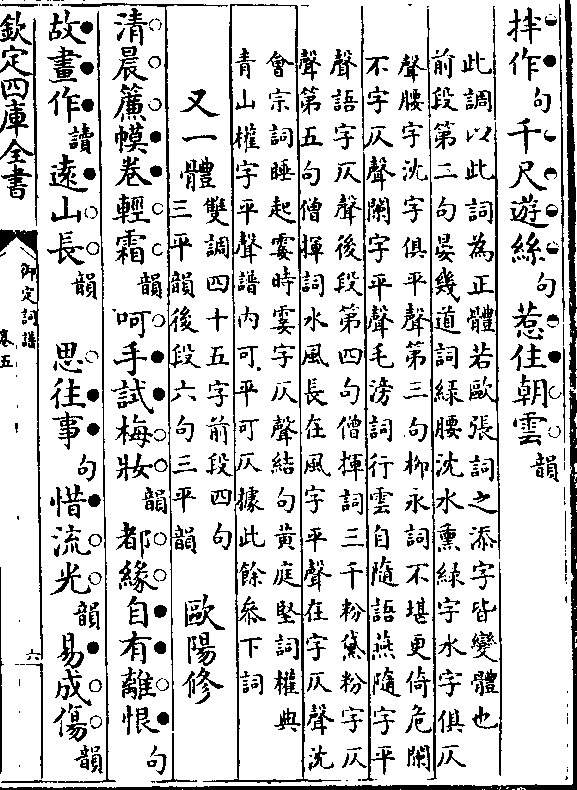 拌作句千尺遊絲句惹住朝雲韻
此調以此詞為正體若歐張詞之添字皆變體也
前段第二句晏幾道詞緑腰沈水熏緑字水字俱仄
聲腰字沈字俱平聲第三句柳永詞不堪更倚危闌
不字仄聲闌字平聲毛滂詞行雲自隨語燕隨字平
聲語字仄聲後段第四句僧揮詞三千粉黛粉字仄
聲第五句僧揮詞水風長在風字平聲在字仄聲沈
會宗詞睡起霎時霎字仄聲結句黄庭堅詞權典
青山權字平聲譜内可平可仄據此餘參下詞
又一體雙調四十五字前段四句
三平韻後段六句三平韻
歐陽修
清晨簾幙卷輕霜韻呵手試梅妝韻都緣自有離恨句
故畫作讀遠山長韻 思往事句惜流光韻易成傷韻
欽定四庫全書
御定詞譜
卷五
六